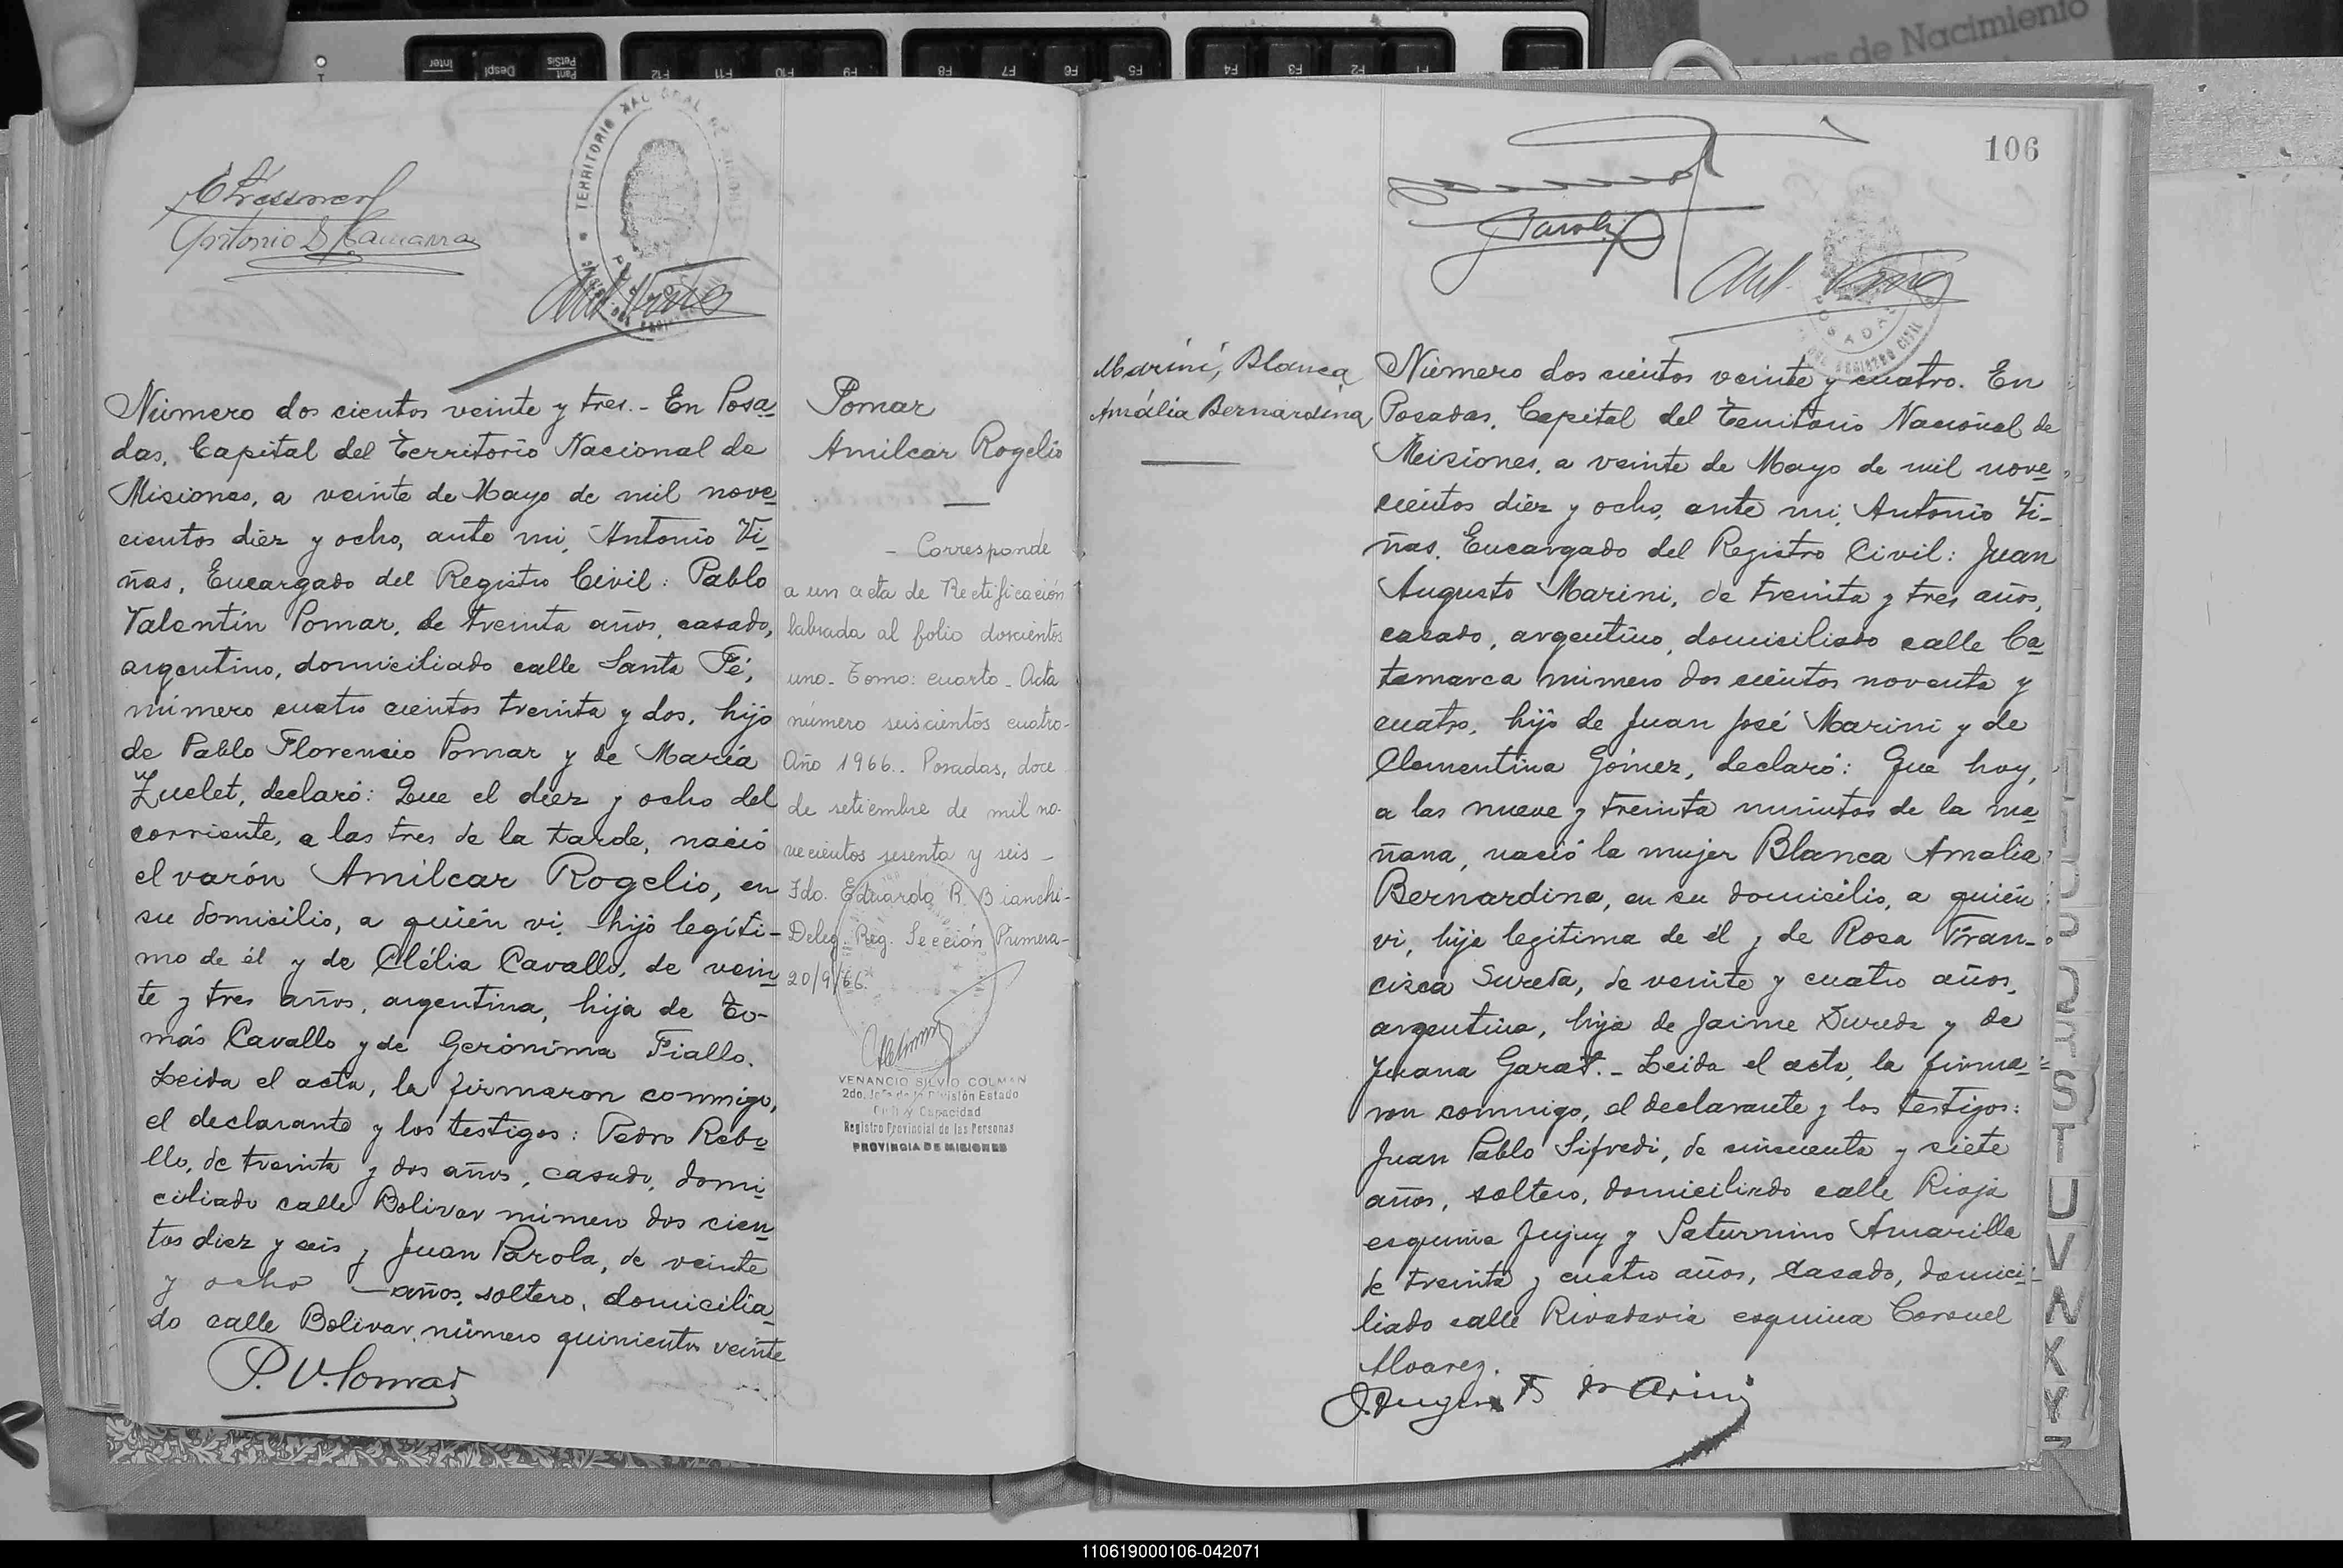 Inter
Despl
Pant
PetSis
F12
F11
F10
F9
F8
F7
F6
F5
F4
F3
F2
F1
de Nacimiento
TERRITORIO NACIONAL
Antonio
Número dos cientos veinte y tres.- En Posa-
das, Capital del Territorio Nacional de
Misiones, a veinte de Mayo de mil nove-
cientos diez y ocho, ante mi, Antonio Vi-
ñas, Encargado del Registro Civil: Pablo
Valentín Pomar, de treinta años, casado,
argentino, domiciliado calle Santa Fé,
número cuatro cientos treinta y dos, hijo
de Pablo Florencio Pomar y de María
Zuelet, declaró: Que el diez y ocho del
corriente, a las tres de la tarde, nació
el varón Amilcar Rogelio, en
su domicilio, a quién vi, hijo legíti-
mo de él y de Clélia Cavallo, de vein-
te y tres años, argentina, hija de To-
más Cavallo y de Gerónima Fiallo.
Leida el acta, la firmaron conmigo,
el declarante y los testigos: Pedro Rebo-
llo, de treinta y dos años, casado, domi-
ciliado calle Bolivar número dos cien-
tos diez y seis y Juan Parola, de veinte
y ocho — años, soltero, domicilia-
do calle Bolivar, número quinientos veinte
P. V. Pomar
Pomar
Amilcar Rogelio
- Corresponde
a un acta de Rectificación
labrada al folio doscientos
uno - Tomo: cuarto - Acta
número seiscientos cuatro-
Año 1966.. Posadas, doce
de setiembre de mil no-
vecientos sesenta y seis -
Fdo. Eduardo R. Bianchi-
Deleg. Reg. Sección Primera-
20/9/66.
VENANCIO SILVIO COLMAN
2do. Jefe de la División Estado
Civil y Capacidad
Registro Provincial de las Personas
PROVINCIA DE MISIONES
106
Parola
Ant. Viñas
REGISTRO CIVIL
Marini, Blanca
Amália Bernardina
Número dos cientos veinte y cuatro. En
Posadas, Capital del Territorio Nacional de
Misiones, a veinte de Mayo de mil nove-
cientos diez y ocho, ante mi, Antonio Vi-
ñas, Encargado del Registro Civil: Juan
Augusto Marini, de treinta y tres años,
casado, argentino, domiciliado calle Ca-
tamarca número dos cientos noventa y
cuatro, hijo de Juan José Marini y de
Clementina Gómez, declaró: Que hoy,
a las nueve y treinta minutos de la ma-
ñana, nació la mujer Blanca Amalia
Bernardina, en su domicilio, a quién
vi, hija legitima de él y de Rosa Fran-
cisca Sureda, de veinte y cuatro años,
argentina, hija de Jaime Sureda y de
Juana Garat.- Leida el acta, la firma-
ron conmigo, el declarante y los testigos:
Juan Pablo Sifredi, de cincuenta y siete
años, soltero, domiciliado calle Rioja
esquina Jujuy y Saturnino Amarilla
de treinta y cuatro años, casado, domici-
liado calle Rivadavia esquina Coronel
Alvarez.
Marini
Q
R
S
T
U
V
W
X
Y
Z
110619000106-042071